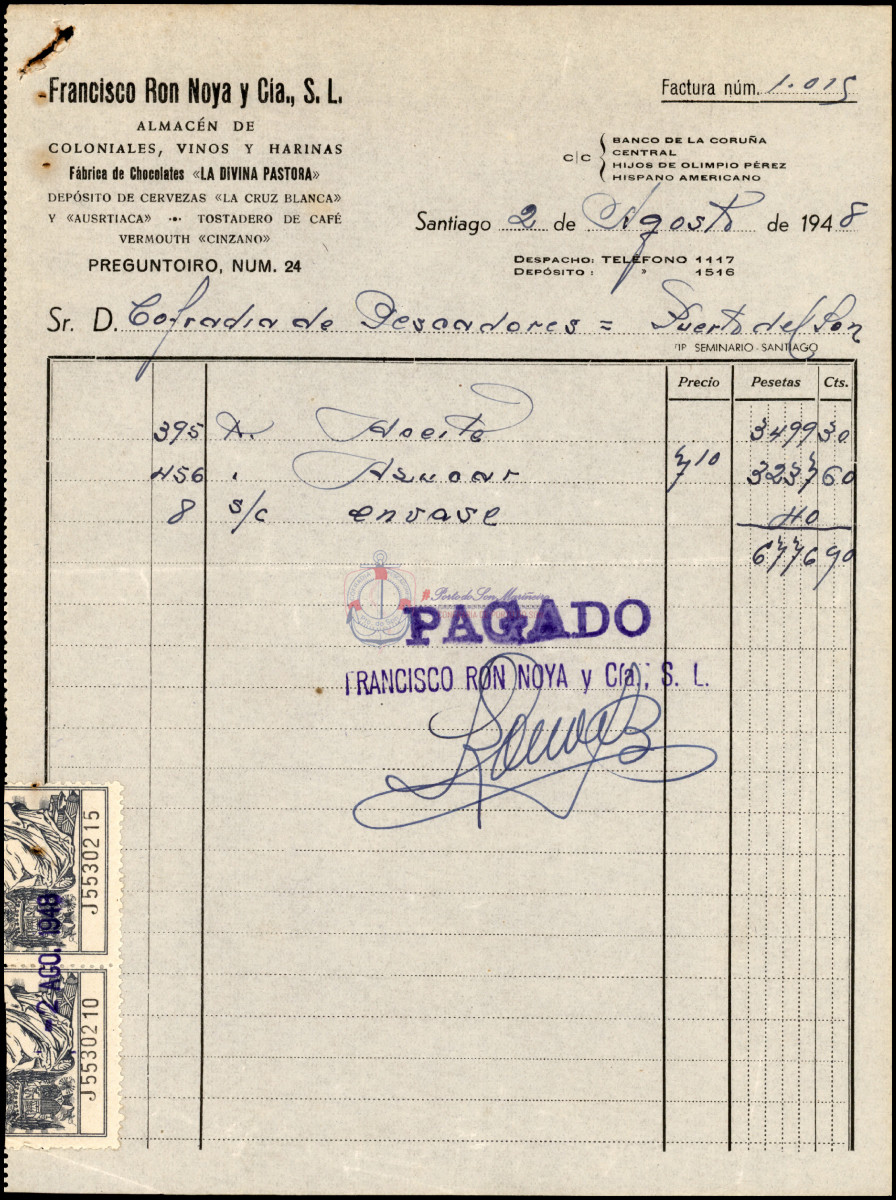 Francisco Ron Noya y Cía., S. L.
ALMACÉN DE
COLONIALES, VINOS Y HARINAS
Fábrica de Chocolates «LA DIVINA PASTORA»
DEPÓSITO DE CERVEZAS «LA CRUZ BLANCA»
Y «AUSRTIACA» -•- TOSTADERO DE CAFÉ
VERMOUTH «CINZANO»
PREGUNTOIRO, NUM. 24
Factura núm. 1.015
c|c
BANCO DE LA CORUÑA
CENTRAL
HIJOS DE OLIMPIO PÉREZ
HISPANO AMERICANO
Santiago 2 de Agosto de 1948
DESPACHO: TELÉFONO 1117
DEPÓSITO: » 1516
Sr. D. Cofradia de Pescadores = Puerto del Son
TIP. SEMINARIO - SANTIAGO
Precio Pesetas Cts.
395 K. Aceite 3499 30
456 " Azucar 7,10 3237 60
8 s/c envase 40
6776 90
Porto do Son Mariñeiro
PAGADO
FRANCISCO RON NOYA y Cía., S. L.
J5530215
- 2 AGO. 1948
J5530210